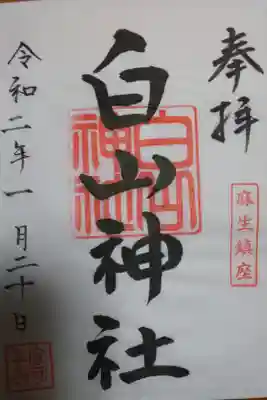 奉拝
麻生鎮座
白山神社
白山
神社
令和二年一月二十日